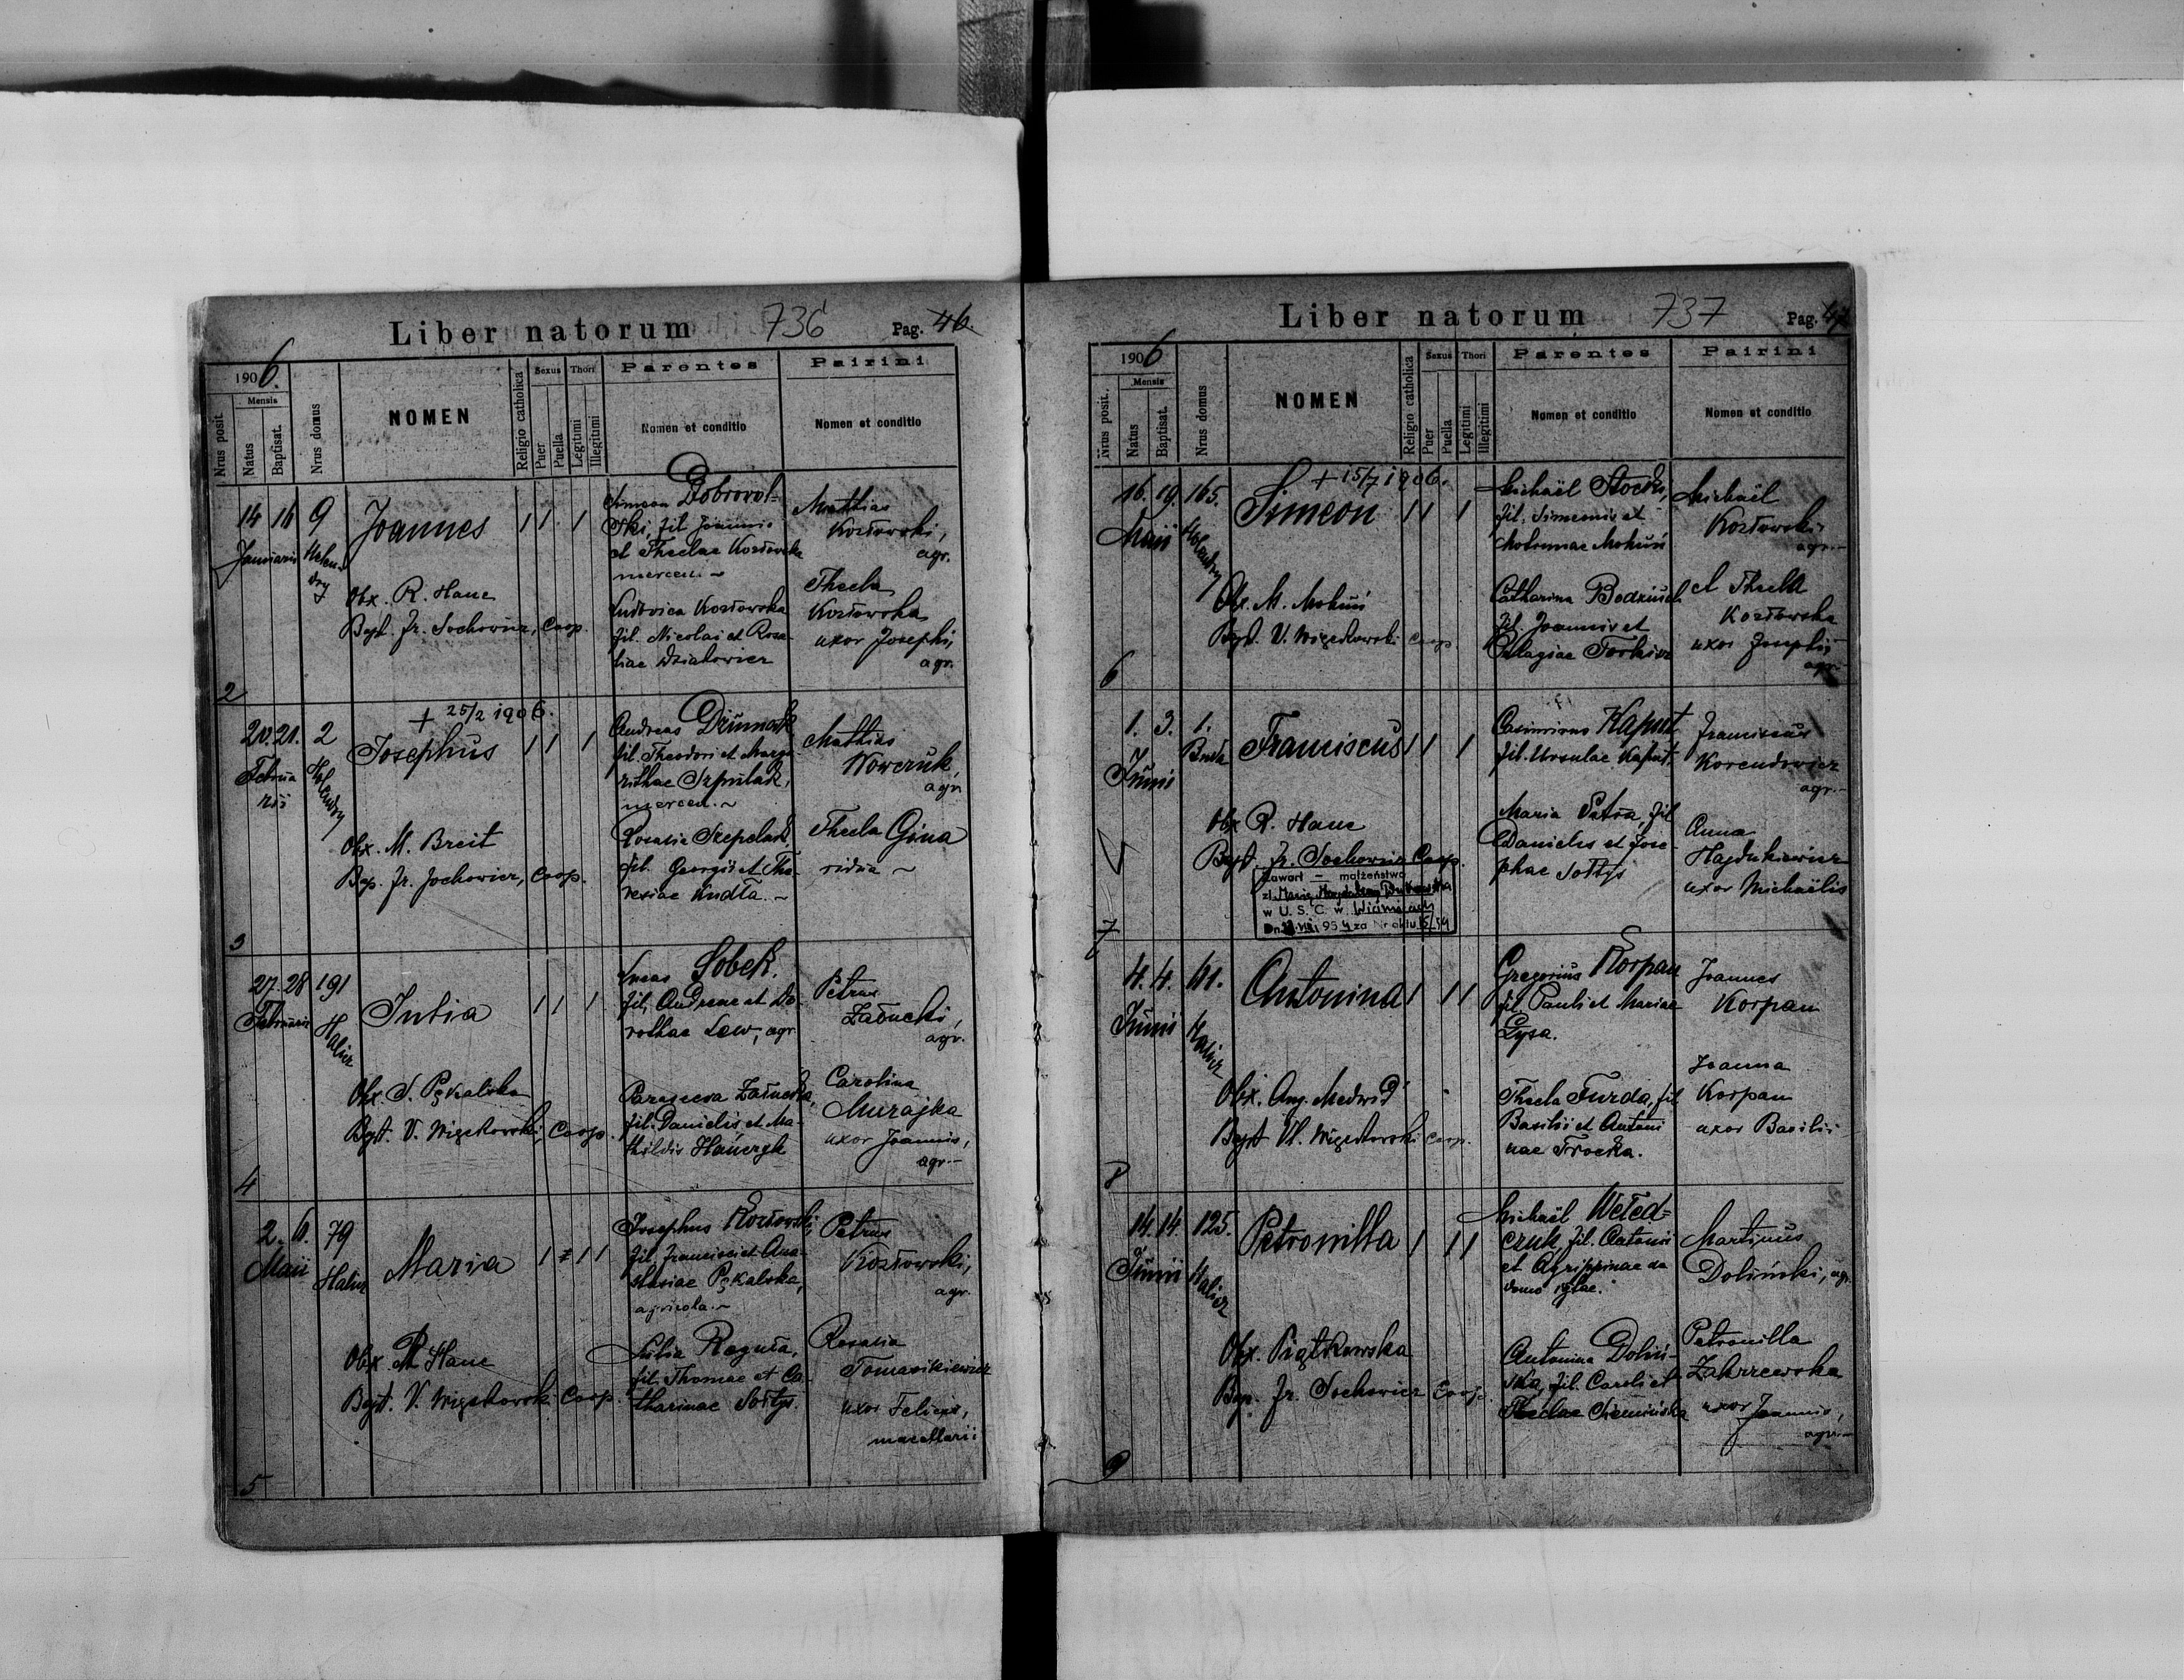 Liber natorum 736 Pag. 46.
1906.
Nrus posit.
Mensis
Natus
Baptisat.
Nrus domus
NOMEN
Religio catholica
Sexus
Puer
Puella
Thori
Legitimi
Illegitimi
Parentes
Nomen et conditio
Patrini
Nomen et conditio
14 16 9
Januarii
Joannes 1 1 1
Obx. R. Hanc
Bapt. Fr. Sochowicz, Coop.
Simeon Dobrowol=
ski, fil. Joannis
et Theclae Kozłowska
mercen.
Ludovica Kozłowska
fil. Nicolai et Rosa-
liae Działowicz
Mathias
Kozłowski,
agr.
Thecla
Kozłowska
uxor Josephi,
agr.
2
+ 25/2 1906.
20. 21. 2
Februa
rii
Holendry
Josephus 1 1 1
Obx. M. Breit
Bap. Fr. Sochowicz, Coop.
Andreas
fil. Theodori et Marga-
rithae Szpulak,
mercen.
Rosalia
fil. Georgii et The-
resiae Kudła.
Mathias
Kowczuk,
agr.
Thecla Gina
vidua
3
27. 28 191
Februarii
Halicz
Julia 1 1 1
Obx. S. Pękalska
Bapt. V. Więckowski, Coop.
Lucas Sobek.
fil. Andreae et Do-
rothae Lew, agr.
Parasceva Załucka,
fil. Danielis et Ma-
thildis Hańczyk
Petrus
Załucki,
agr.
Carolina
Murajka
uxor Joannis,
agr.
4
2. 6. 79
Maii
Halicz
Maria 1 1 1
Obx. R. Hanc
Bapt. V. Więckowski Coop.
Josephus Kozłowski,
fil. Francisci et Ana-
stasiae Pękalska,
agricola.
Julia Roguła,
fil. Thomae et Ca-
tharinae Sołtys.
Petrus
Kozłowski,
agr.
Rosalia
Tomasikiewicz
uxor Felicis,
macellarii
5
Liber natorum 737 Pag. 47
1906
Nrus posit.
Mensis
Natus
Baptisat.
Nrus domus
NOMEN
Religio catholica
Sexus
Puer
Puella
Thori
Legitimi
Illegitimi
Parentes
Nomen et conditio
Patrini
Nomen et conditio
+ 15/7 1906.
16. 19. 165.
Maii
Holendry
Simeon 1 1 1
Obx. M. Mohuś
Bapt. V. Więckowski Coop.
Michaël Stocki,
fil. Simeonis et
Mohuś
Catharina
fil. Joannis et
Pelagiae
Michaël
Kozłowski
agr.
et Thecla
Kozłowska
uxor Josephi,
agr.
6
1. 3. 1.
Junii
Franciscus 1 1 1
Obx R. Hanc
Bapt. Fr. Sochowicz Coop.
Zawarł – małżeństwo
w U.S.C. w
954 za Nr aktu 15/54
Casimirus Kaput
fil. Ursulae Kaput.
Maria fil
Danielis et Jose-
phae Sołtys
Franciscus
Korendowicz
agr.
Anna
Hajdukiewicz
uxor Michaëlis
7
4. 4. 41.
Junii
Halicz
Antonina 1 1 1
Obx. Ang. Medwid
Bapt Vl. Więckowski Coop.
Gregorius Korpan
fil Pauli et Mariae
Gysa.
Thecla Furda, fil
Basilii et Antoni
nae Trocka.
Joannes
Korpan
Joanna
Korpan
uxor Basilii
8
14. 14. 125.
Junii
Halicz
Petronilla 1 1 1
Obx. Piątkowska
Bap. Fr. Sochowicz Coop.
Michaël Weted=
czuk fil. Antonii
et Agrippinae de
domo
Antonina Doliń-
ska, fil. Caroli et
Theclae
Martinus
Doliński, agr.
Petronilla
Zakrzewska
uxor Joannis,
agr.
9